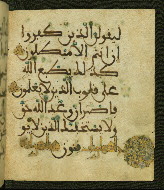 ليقولن الذين كفروا
إن أنتم إلا مبطلون
كذلك يطبع الله
على قلوب الذين لا يعلمون
فاصبر إن وعد الله حق
ولا يستخفنك الذين لا يو
قنون